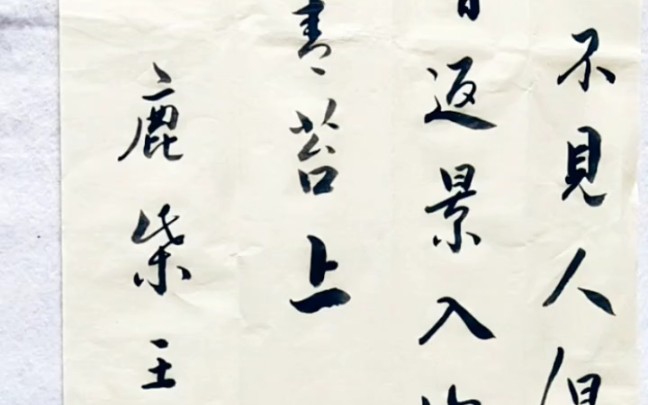 不見人但
返景入
青苔上
鹿柴王